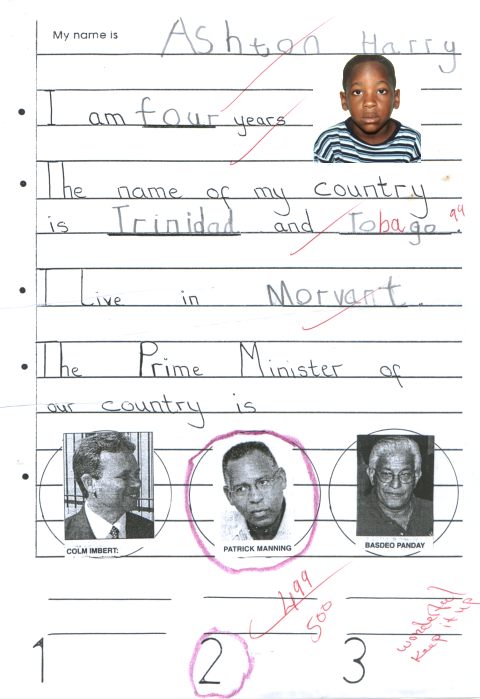 My name is Ashton Harry
I am four years
The name of my country
is Trinidad and Tobago.
I Live in Morvant.
The Prime Minister of
our country is
COLM IMBERT: PATRICK MANNING BASDEO PANDAY
499
500
wonderful
keep it up
1 2 3